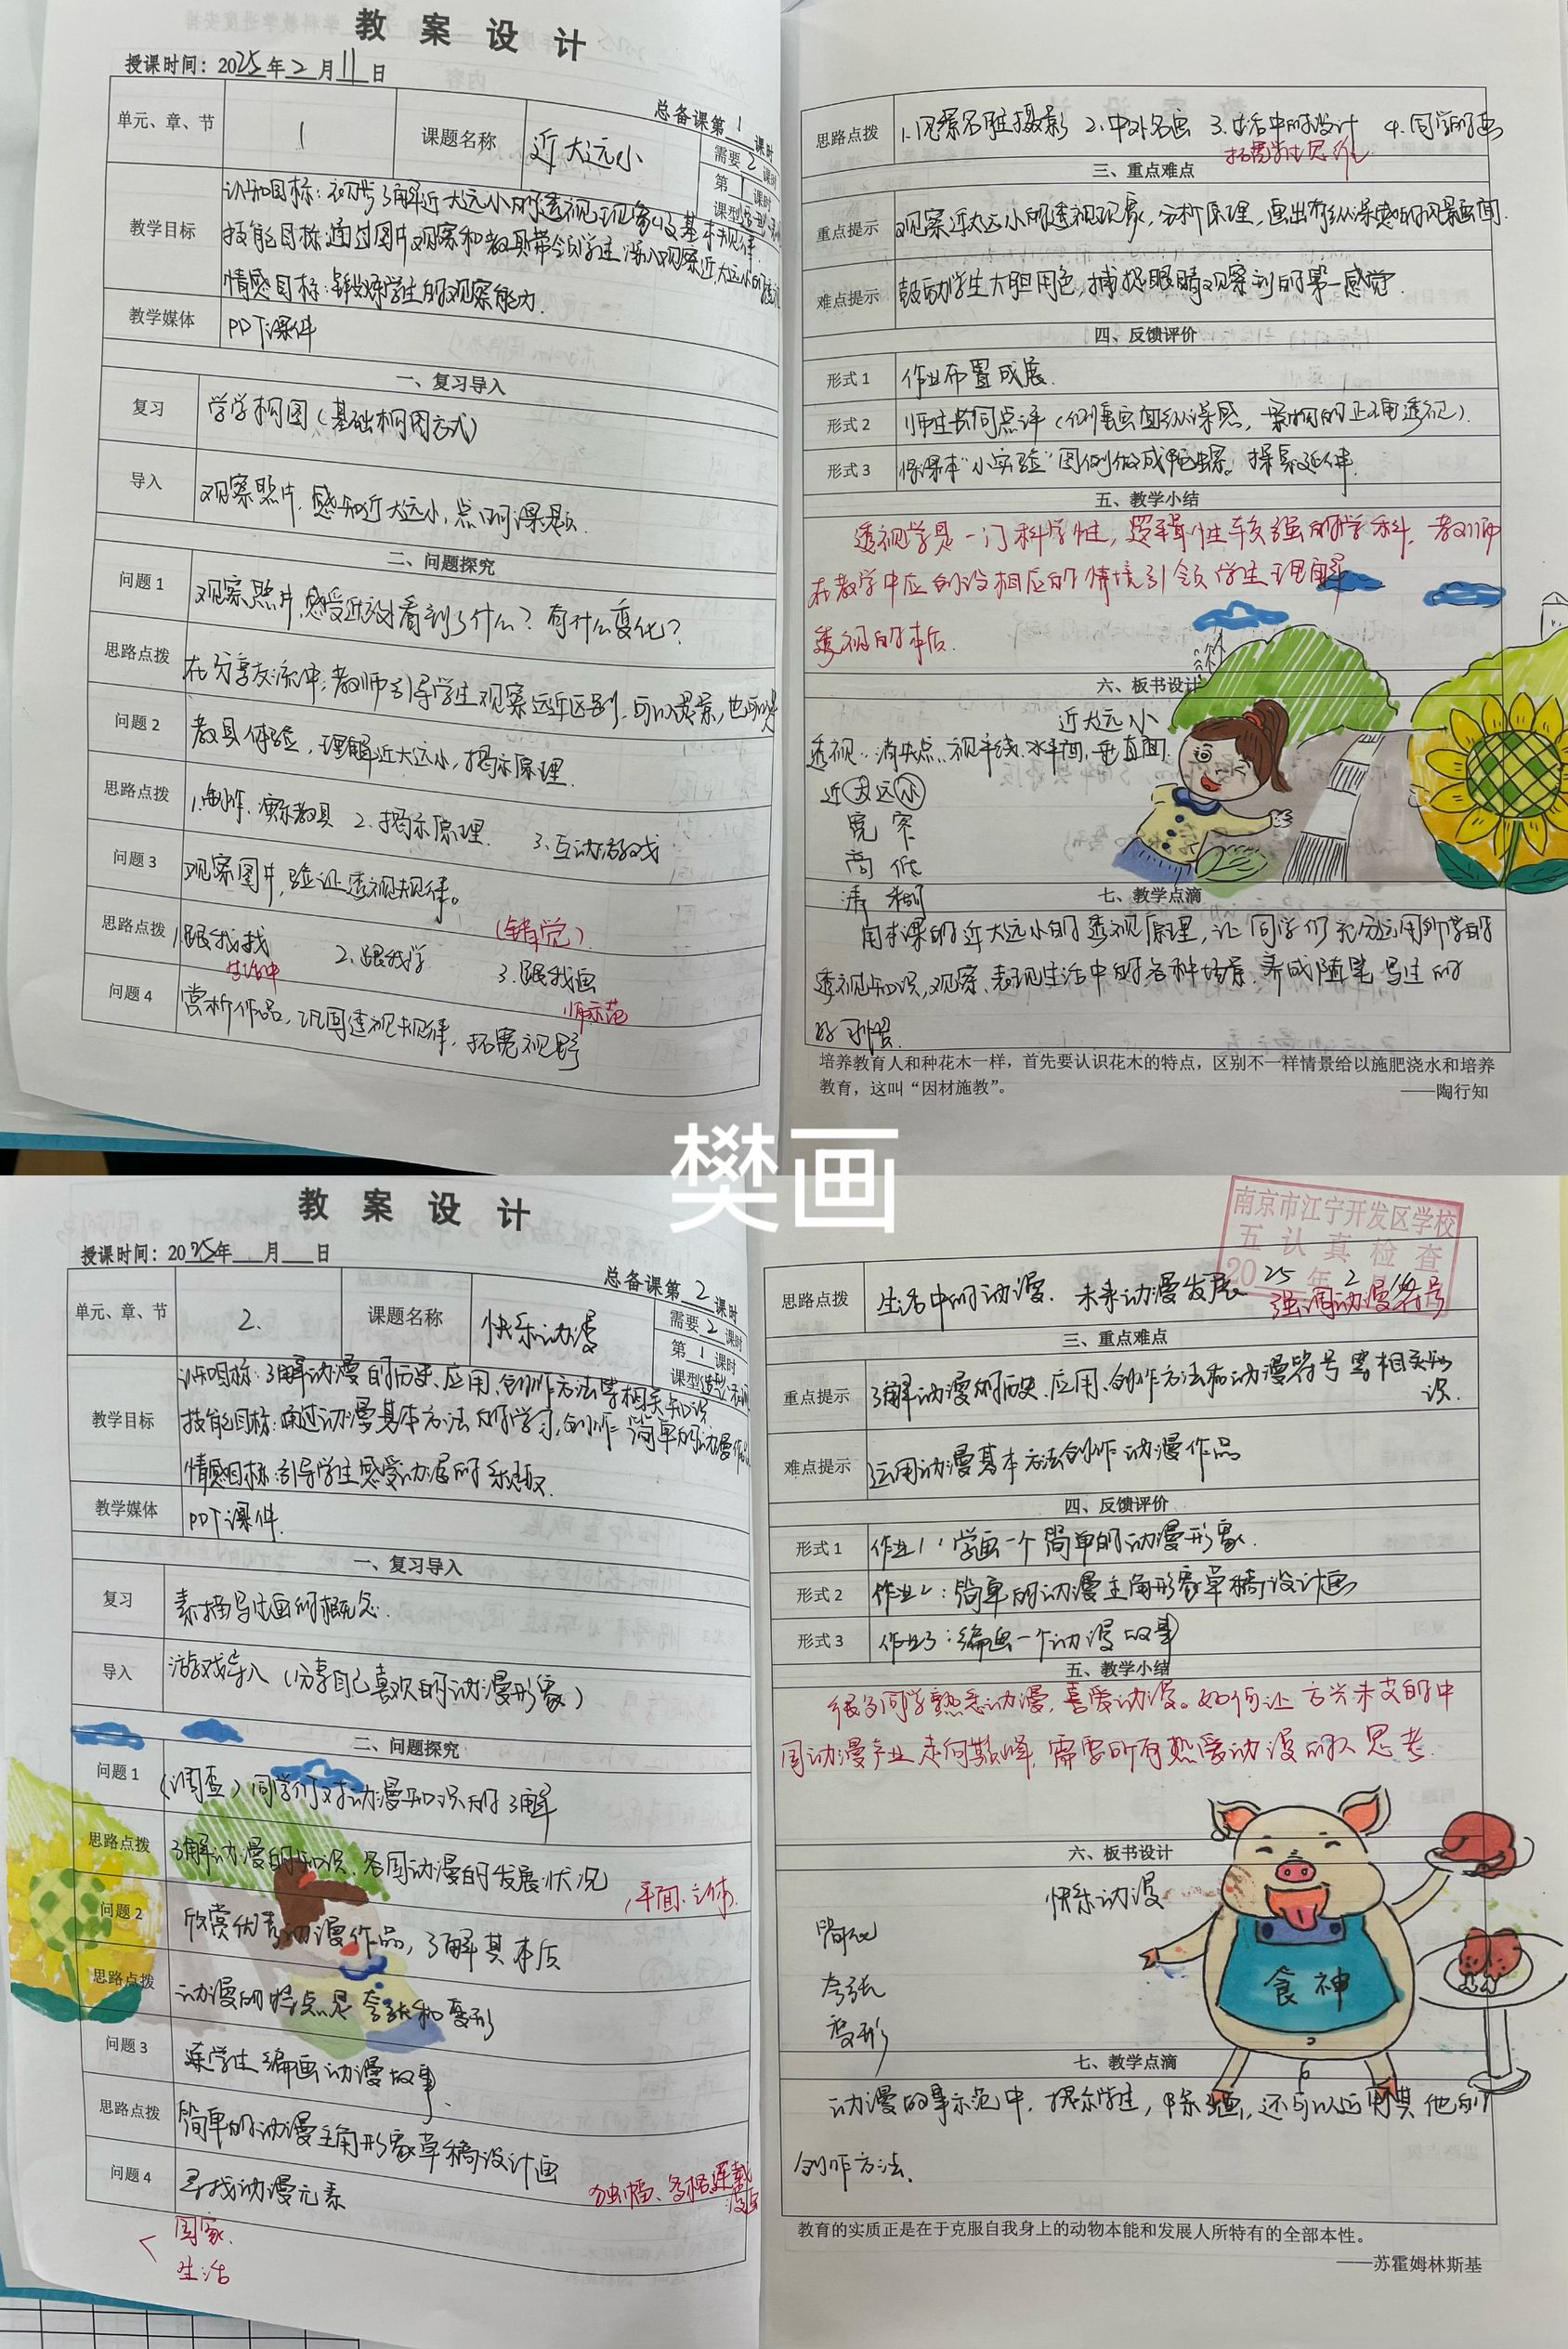 教案设计
授课时间：2025年2月11日
总备课第1课时
单元、章、节 1 课题名称 近大远小
需要2课时
第1课时
课型
教学目标
认知目标：初步了解近大远小的透视现象以及基本规律.
技能目标：通过图片观察和教具带领学生深入观察近大远小的
情感目标：锻炼学生的观察能力.
教学媒体 PPT课件
一、复习导入
复习 学学构图（基础构图方式）
导入 观察照片，感知近大远小，点明课题.
二、问题探究
问题1 观察照片，感受 看到了什么？有什么变化？
思路点拨 在分享交流中，教师引导学生观察远近区别，可以是景，也可以是
问题2 教具体验，理解近大远小，揭示原理.
思路点拨 1.制作、演示教具 2.揭示原理. 3.互动游戏
问题3 观察图片，验证透视规律。
（错觉）
思路点拨 1.跟我找 2.跟我学 3.跟我画
生活中
师示范
问题4 赏析作品，巩固透视规律，拓宽视野
思路点拨 1.观察 摄影 2.中外名画 3.生活中的设计 4.同学的画
三、重点难点
重点提示 观察近大远小的透视现象，分析原理，画出有纵深感的风景画面.
难点提示 鼓励学生大胆用色，捕捉眼睛观察到的第一感觉.
四、反馈评价
形式1 作业布置成展.
形式2 师生共同点评（侧重画面纵深感，景物的正确透视）.
形式3 将课本“小实验”图例做成 探索延伸.
五、教学小结
透视学是一门科学性，逻辑性较强的学科，教师
在教学中应创设相应的情境引领学生理解
透视的本质.
六、板书设计
近大远小
透视：消失点、视平线、水平面，垂直面
近大远小
宽 窄
高 低
清 糊
七、教学点滴
用本课的近大远小的透视原理，让同学们充分运用所学的
透视知识，观察、表现生活中的各种场景，养成随笔写生的
好习惯.
培养教育人和种花木一样，首先要认识花木的特点，区别不一样情景给以施肥浇水和培养
教育，这叫“因材施教”。
——陶行知
樊画
教案设计
授课时间：2025年 月 日
总备课第2课时
单元、章、节 2. 课题名称 快乐动漫
需要2课时
第1课时
课型
教学目标
认知目标：了解动漫的历史、应用、创作方法等相关知识
技能目标：通过动漫基本方法的学习，创作简单的动漫作品
情感目标：引导学生感受动漫的乐趣.
教学媒体 PPT课件.
一、复习导入
复习 素描写生画的概念.
导入 游戏导入（分享自己喜欢的动漫形象）
二、问题探究
问题1 （调查）同学们对动漫知识的了解
思路点拨 了解动漫的知识、各国动漫的发展状况
平面、立体
问题2 欣赏优秀动漫作品，了解其本质
思路点拨 动漫的特点是夸张和变形
问题3 深学生编画动漫故事.
思路点拨 简单的动漫主角形象草稿设计画
独幅、多格连载漫画
问题4 寻找动漫元素
国家
生活
南京市江宁开发区学校
五认真检查
2025年2月
思路点拨 生活中的动漫. 未来动漫发展
强调动漫符号
三、重点难点
重点提示 了解动漫的历史、应用、创作方法和动漫符号等相关知识.
难点提示 运用动漫基本方法创作动漫作品
四、反馈评价
形式1 作业1：学画一个简单的动漫形象.
形式2 作业2：简单的动漫主角形象草稿设计画
形式3 作业3：编画一个动漫故事
五、教学小结
很多同学熟悉动漫，喜爱动漫。如何让方兴未艾的中
国动漫产业走向巅峰，需要所有热爱动漫的人思考.
六、板书设计
快乐动漫
简化
夸张
变形
食神
七、教学点滴
动漫故事示范中，提示学生， 还可以运用其他的
创作方法.
教育的实质正是在于克服自我身上的动物本能和发展人所特有的全部本性。
——苏霍姆林斯基